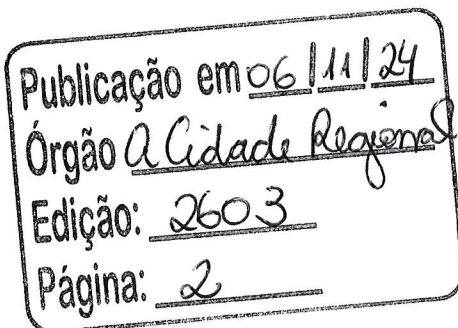 Publicação em 06/11/24
Órgão A Cidade Regional
Edição: 2603
Página: 2